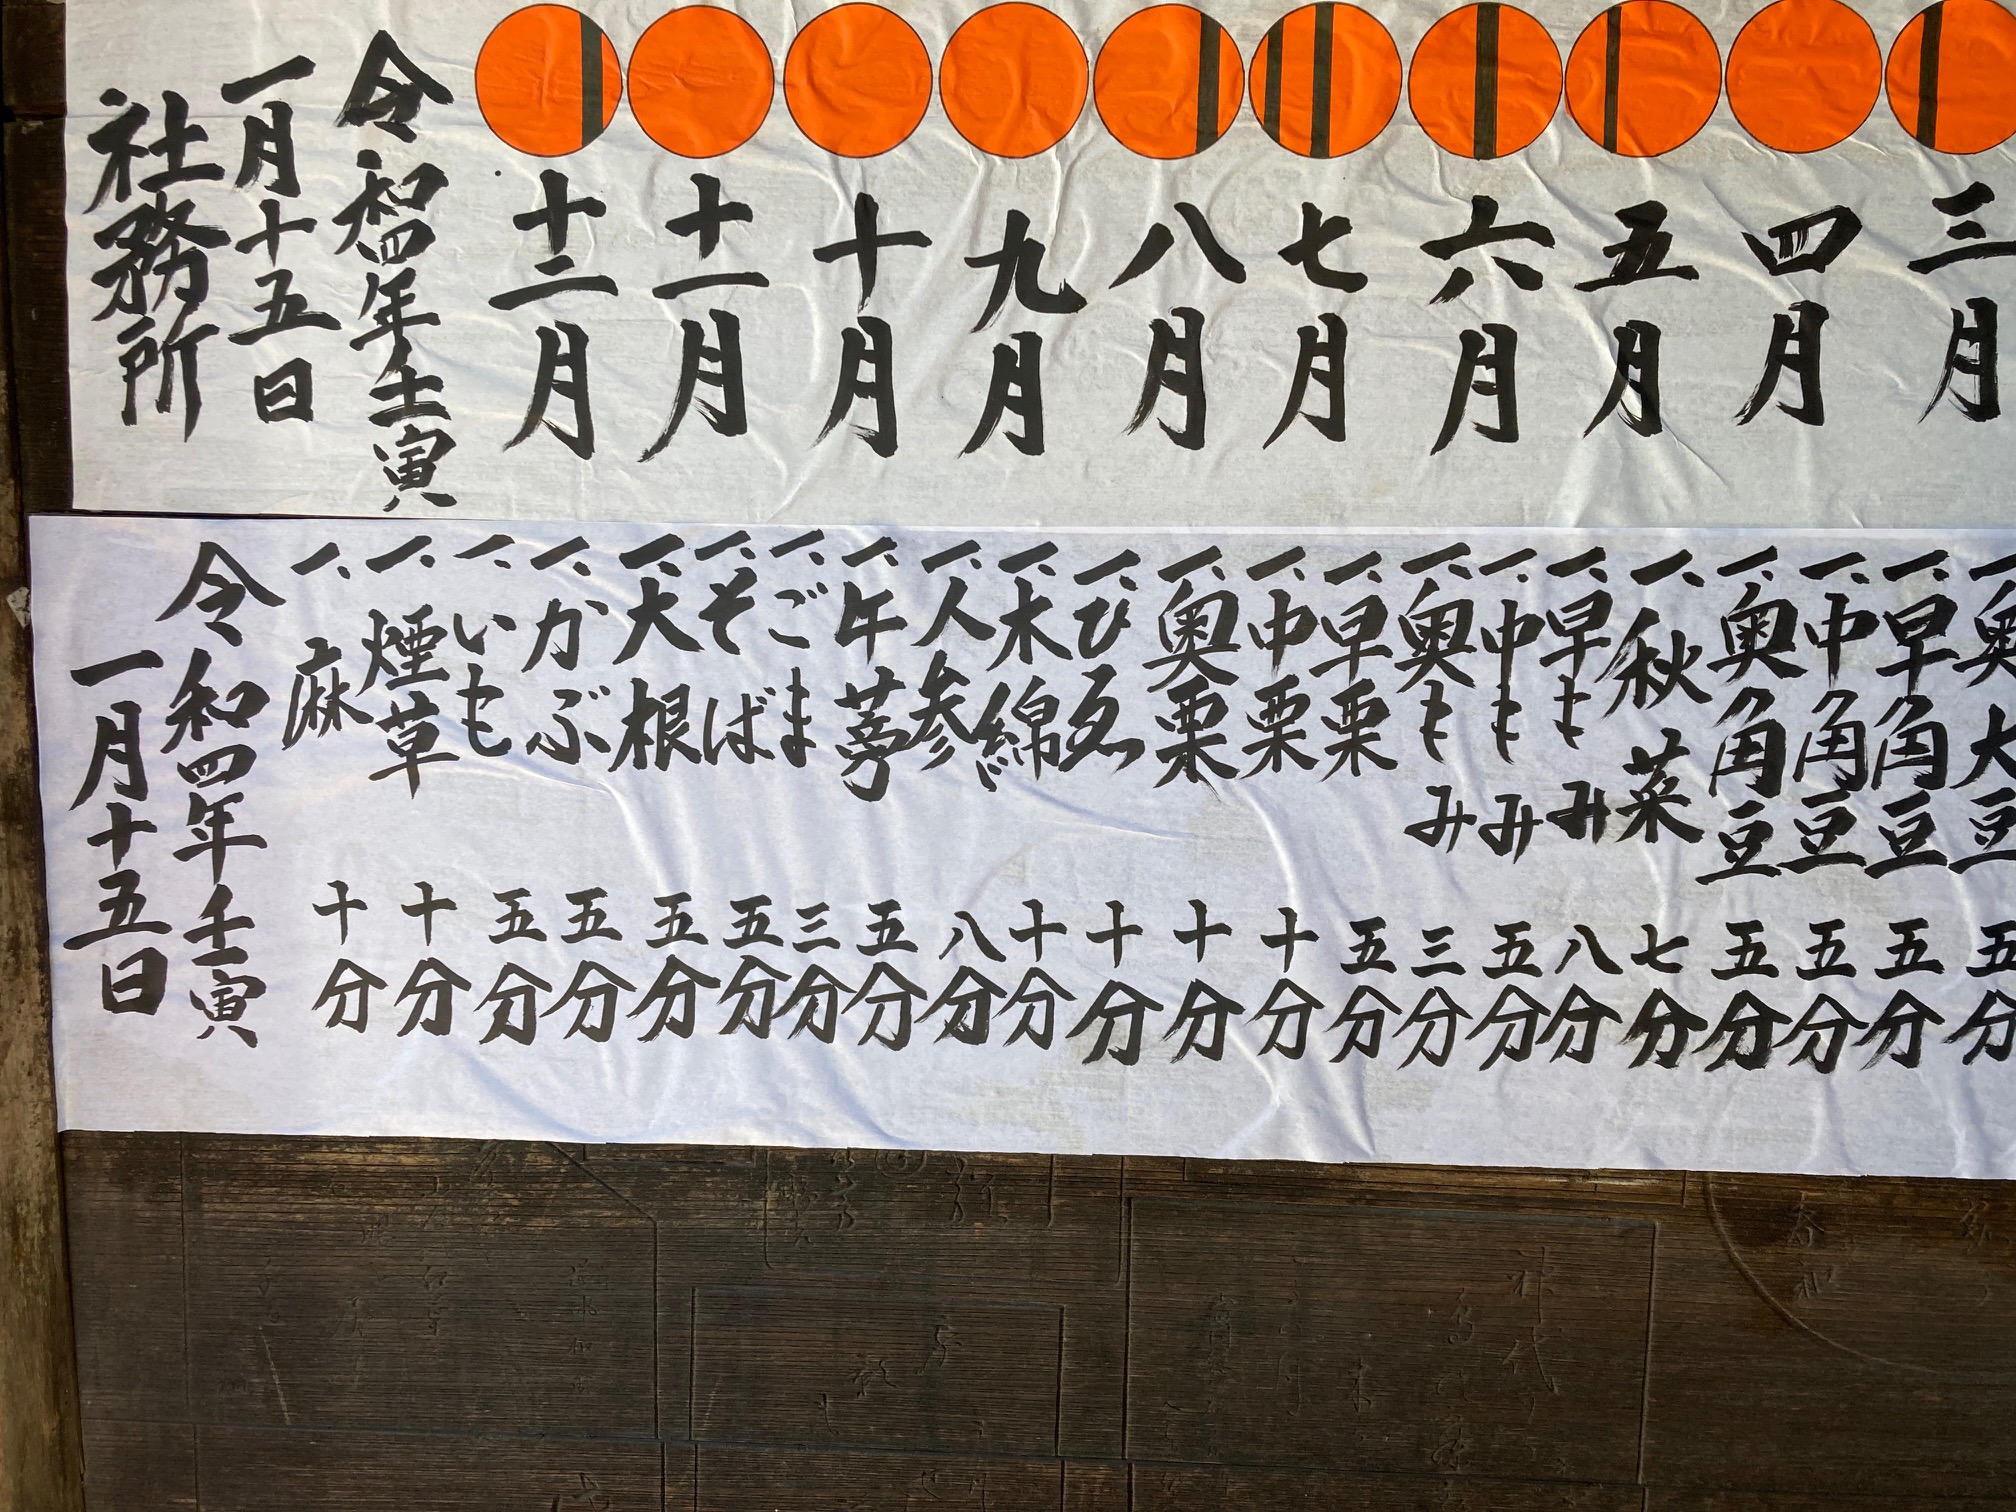 三月
四月
五月
六月
七月
八月
九月
十月
十一月
十二月
令和四年壬寅
一月十五日
社務所
一、奥大豆 五分
一、早角豆 五分
一、中角豆 五分
一、奥角豆 五分
一、秋菜 七分
一、早もみ 八分
一、中もみ 五分
一、奥もみ 三分
一、早栗 五分
一、中栗 十分
一、奥栗 十分
一、ひゑ 十分
一、木綿 十分
一、人参 八分
一、牛蒡 五分
一、ごま 三分
一、そば 五分
一、大根 五分
一、かぶ 五分
一、いも 五分
一、煙草 十分
一、麻 十分
令和四年壬寅
一月十五日